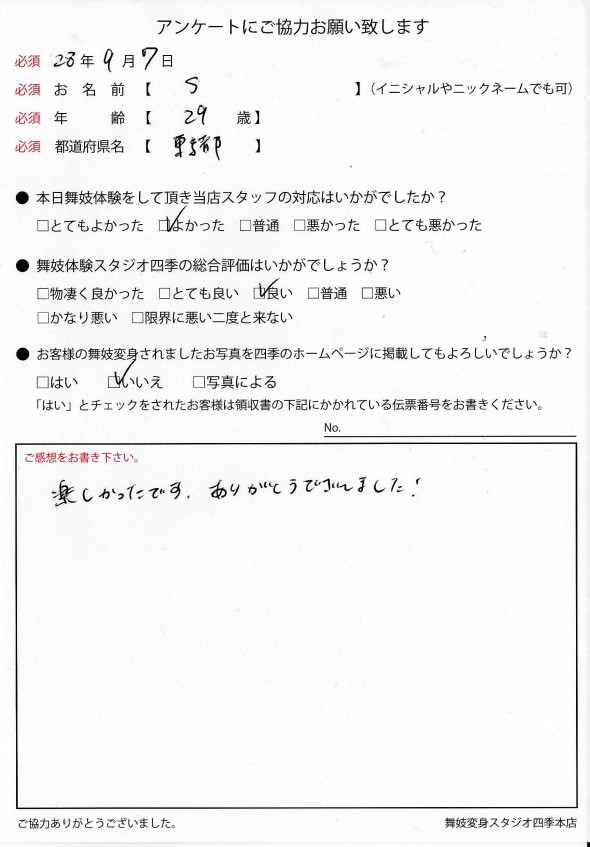 アンケートにご協力お願い致します
必須 28年9月7日
必須 お名前【 S 】（イニシャルやニックネームでも可）
必須 年齢【 29 歳】
必須 都道府県名【 東京都 】
● 本日舞妓体験をして頂き当店スタッフの対応はいかがでしたか？
□とてもよかった ☑よかった □普通 □悪かった □とても悪かった
● 舞妓体験スタジオ四季の総合評価はいかがでしょうか？
□物凄く良かった □とても良い ☑良い □普通 □悪い
□かなり悪い □限界に悪い二度と来ない
● お客様の舞妓変身されましたお写真を四季のホームページに掲載してもよろしいでしょうか？
□はい ☑いいえ □写真による
「はい」とチェックをされたお客様は領収書の下記にかかれている伝票番号をお書きください。
No.
ご感想をお書き下さい。
楽しかったです。ありがとうございました！
ご協力ありがとうございました。
舞妓変身スタジオ四季本店